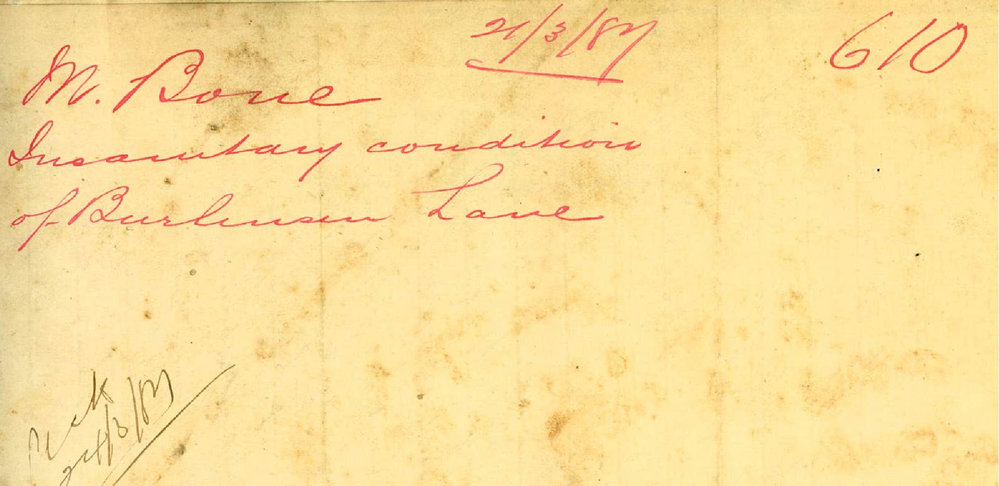 21/3/87 610
M. Bone
Insanitary condition
of Burlinson Lane
24/3/87